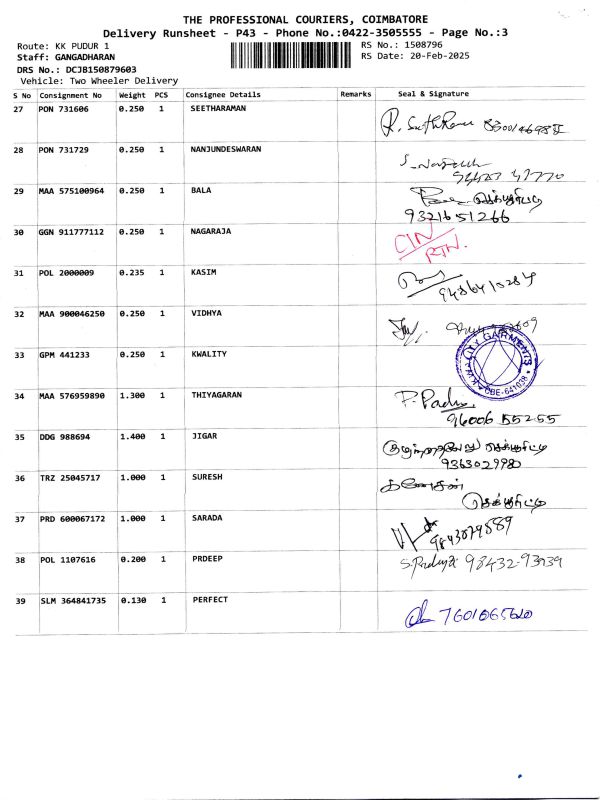 THE PROFESSIONAL COURIERS, COIMBATORE
Delivery Runsheet - P43 - Phone No.:0422-3505555 - Page No.:3
Route: KK PUDUR 1 RS No.: 1508796
Staff: GANGADHARAN RS Date: 20-Feb-2025
DRS No.: DCJB150879603
Vehicle: Two Wheeler Delivery
S No Consignment No Weight PCS Consignee Details Remarks Seal & Signature
27 PON 731606 0.250 1 SEETHARAMAN
28 PON 731729 0.250 1 NANJUNDESWARAN
29 MAA 575100964 0.250 1 BALA
9321651266
30 GGN 911777112 0.250 1 NAGARAJA
RTN.
31 POL 2000009 0.235 1 KASIM
32 MAA 900046250 0.250 1 VIDHYA
33 GPM 441233 0.250 1 KWALITY
KWALITY GARMENTS CBE-641038
34 MAA 576959890 1.300 1 THIYAGARAN
96006 55255
35 DDG 988694 1.400 1 JIGAR
செக்யூரிட்டி
9363029980
36 TRZ 25045717 1.000 1 SURESH
கணேசன்
செக்யூரிட்டி
37 PRD 600067172 1.000 1 SARADA
9843079889
38 POL 1107616 0.200 1 PRDEEP
39 SLM 364841735 0.130 1 PERFECT